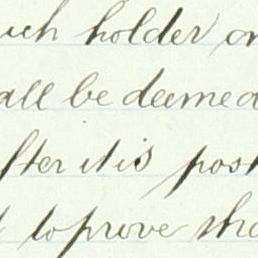 uch holder or
all be deemed
fter it is post
to prove sho